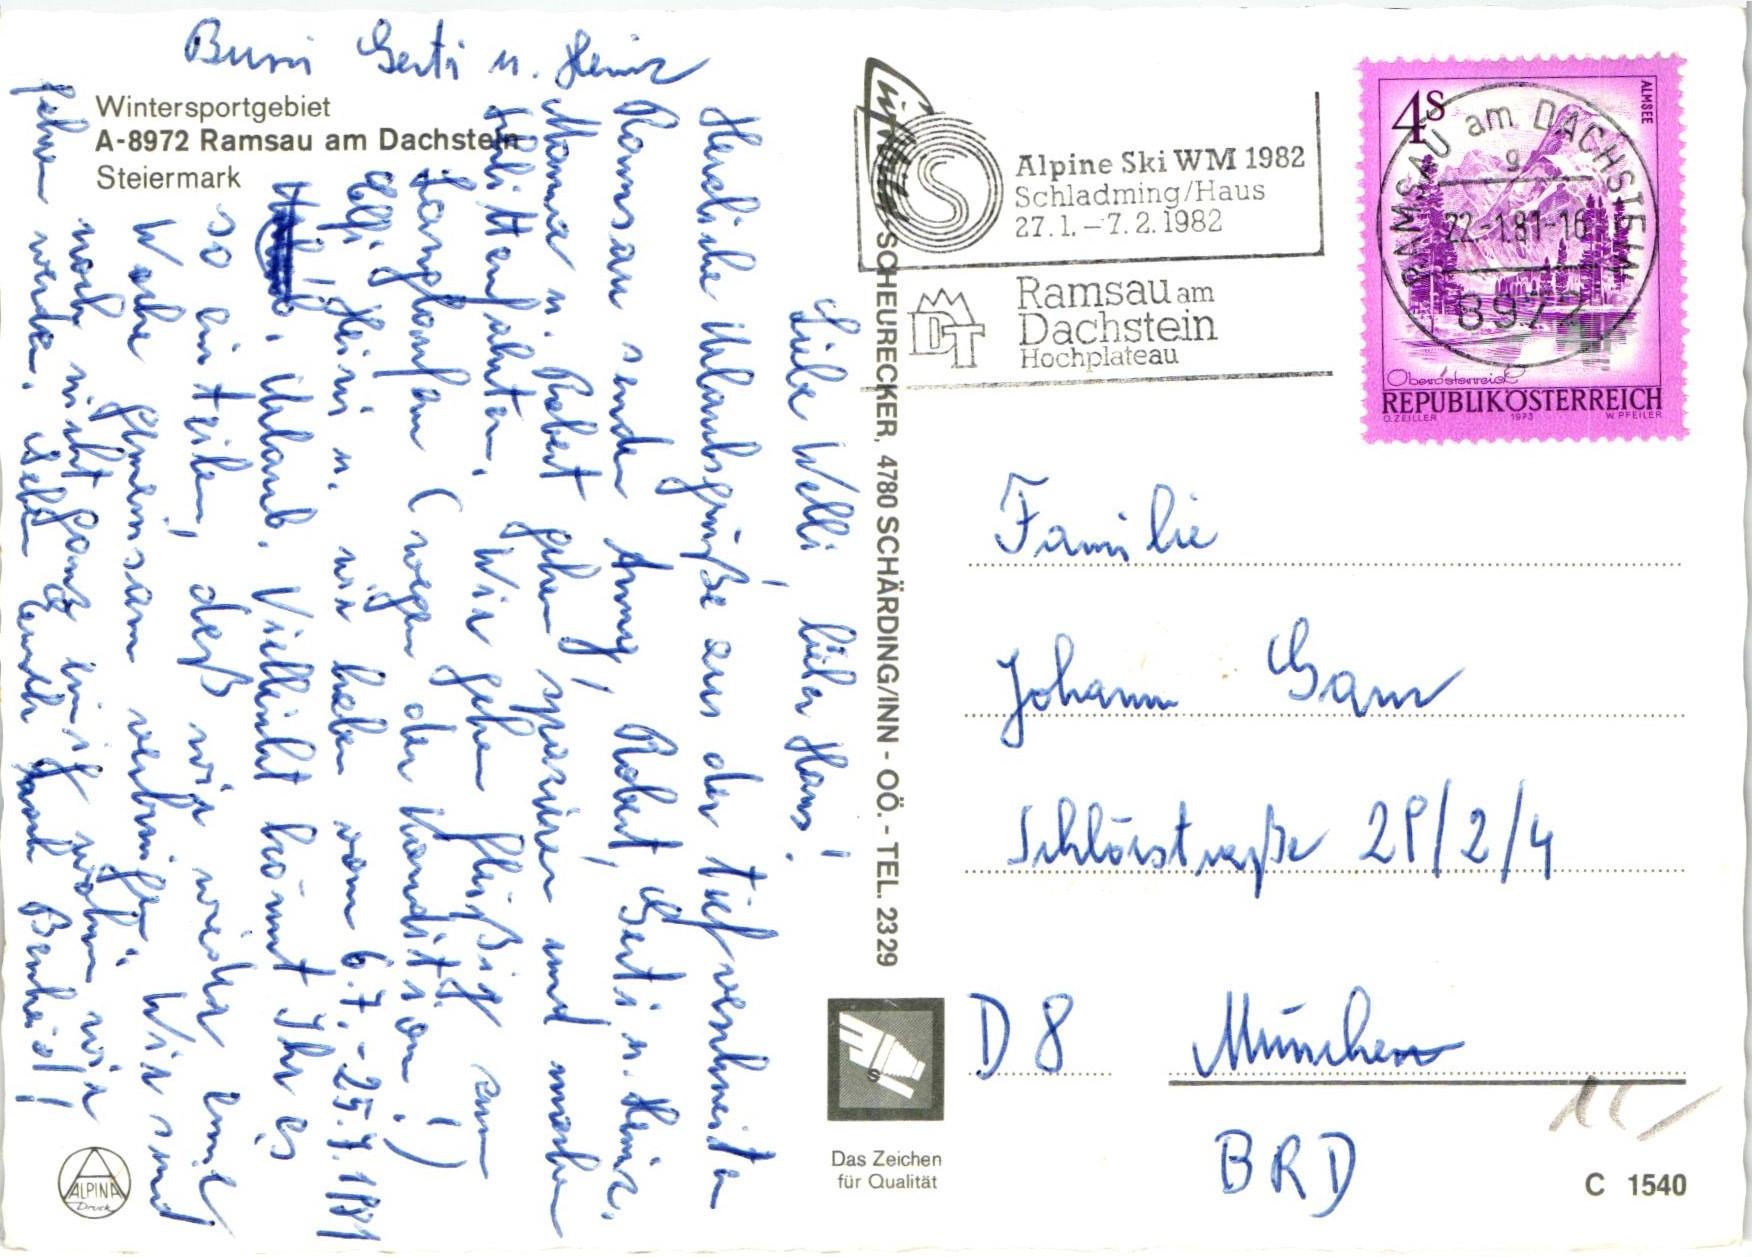 Wintersportgebiet
A-8972 Ramsau am Dachstein
Steiermark
Liebe Welli, lieber Hans!
Herzliche Urlaubsgrüße aus der tiefverschneiten
Ramsau senden Anny, Robert, Gerti u. Heinz.
Mama u. Robert gehen spazieren und machen
Schlittenfahrten. Wir gehen fleißig zum
Langlaufen (wegen der Kondition!)
Elfi, Heini u. wir haben vom 6.7.-25.7.1981
Urlaub. Vielleicht könnt Ihr es
so einteilen, daß wir wieder eine
Woche gemeinsam verbringen. Wir sind
noch nicht ganz einig wohin wir
fahren werden. Geben Euch dann Bescheid!
Bussi Gerti u. Heinz
SCHEURECKER, 4780 SCHÄRDING/INN - OÖ. - TEL. 2329
Das Zeichen
für Qualität
ALPINA
Druck
Alpine Ski WM 1982
Schladming/Haus
27.1.-7.2.1982
Ramsau am
Dachstein
Hochplateau
DT
4S
ALMSEE
RAMSAU am DACHSTEIN
g
22.-1.81-16
8972
Oberösterreich
REPUBLIK ÖSTERREICH
O. ZEILLER 1973 W. PFEILER
Familie
Johann
Schlörstraße 28/2/4
D 8 München
BRD
C 1540